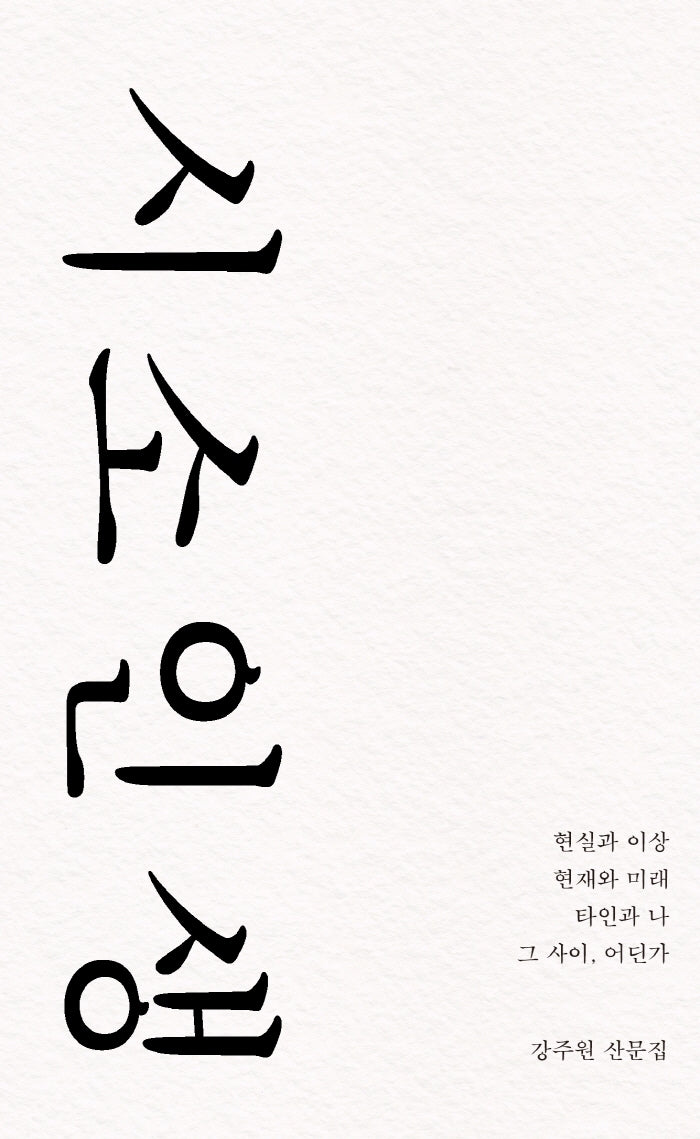 시소인생
현실과 이상
현재와 미래
타인과 나
그 사이, 어딘가
강주원 산문집